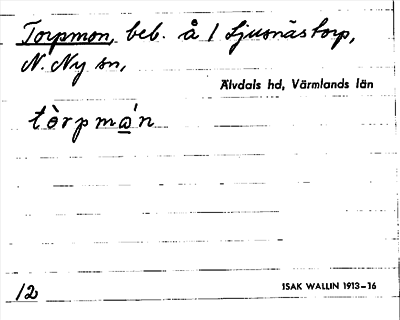 Torpmon, beb. å 1 Ljusnästorp,
N. Ny sn,
Älvdals hd, Värmlands län
tòrpmạ́n
12
ISAK WALLIN 1913–16